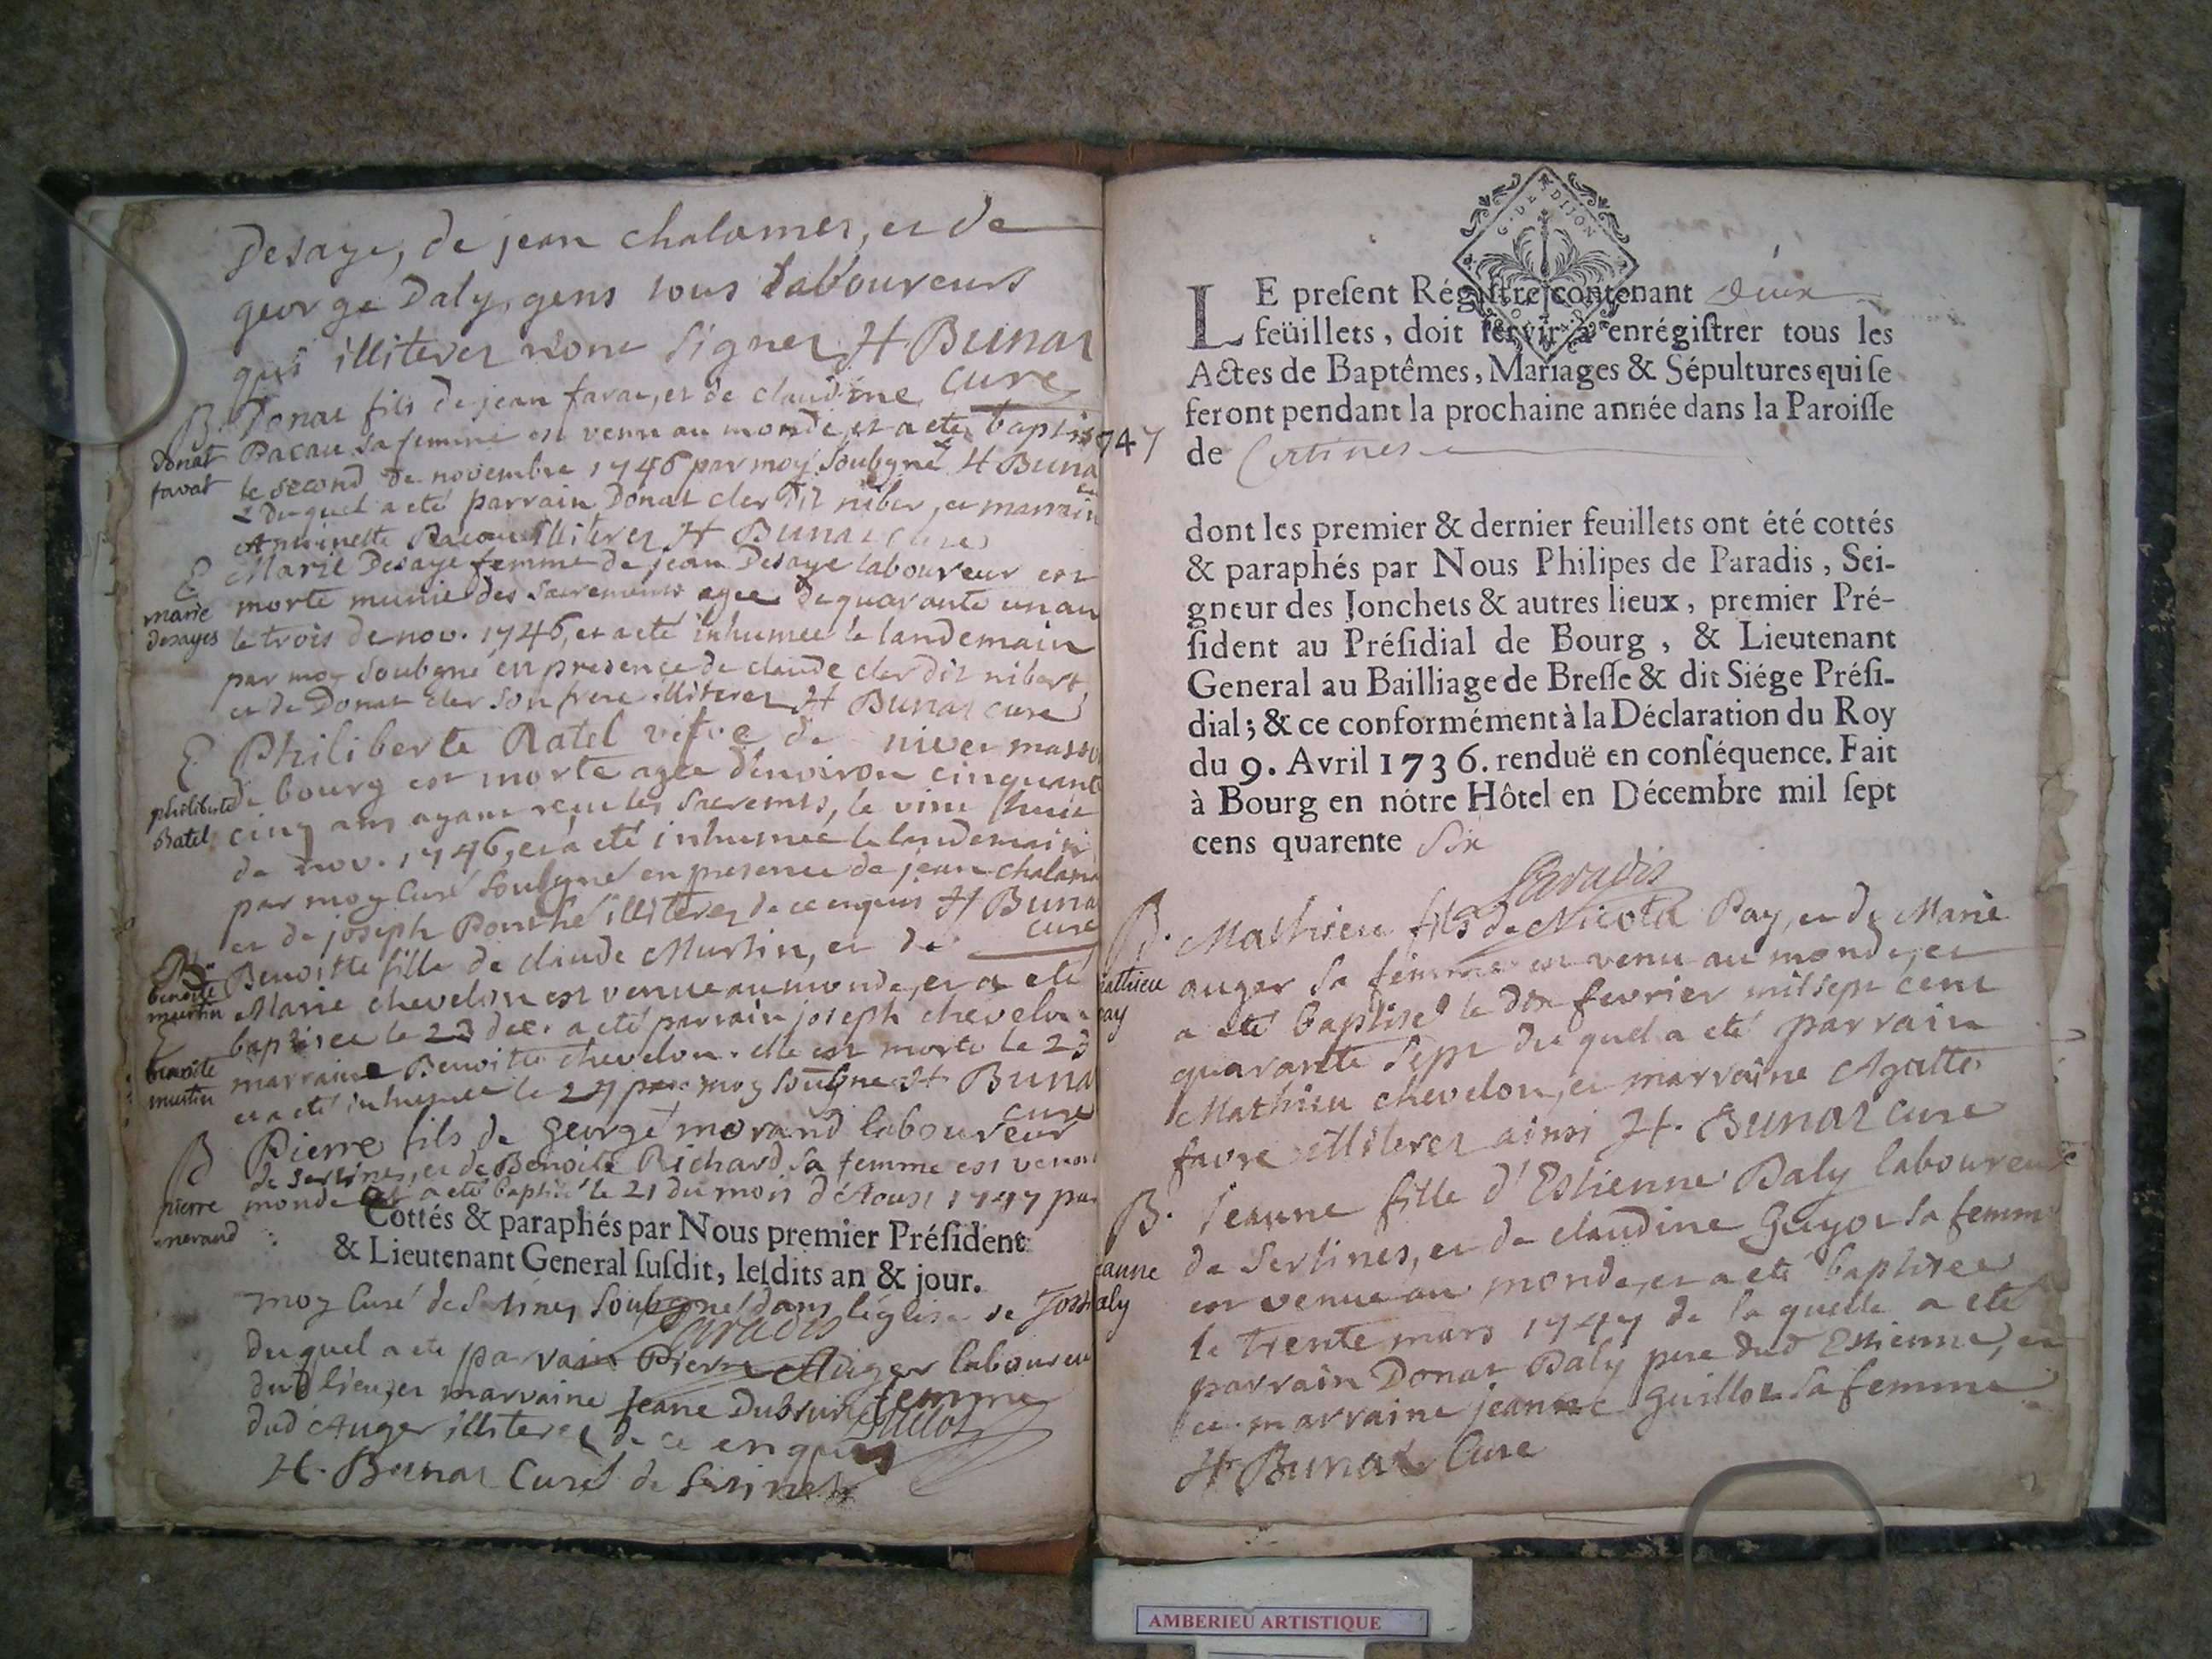 Desaye, de jean chalamer, et de
george Daly, gens tous Laboureurs
qui illiteres n'ont signer H Bunat
curé
B. Donat fils de jean favat, et de claudine
donat
favat
Pacau sa femme est venu au monde, et a eté baptis
le second de novembre 1746 par moy soubgné H Buna
Duquel a eté parrain Donat cler dit niber, et marrain
Antoinette Pacau illiteres H Bunat curé
E
marie
desayes
Marie Desaye femme de jean Desaye laboureur est
morte munie des sacrements agee de quarante un an
le trois de nov. 1746, et a eté inhumee le landemain
par moy soubgné en presence de claude cler dit nibert
et de Donat cler son frere illiteres H Bunat curé
E
philiberte
Ratel
Philiberte Ratel vefve de niver masso
de bourg est morte agee d'environ cinquante
cinq ans ayant receu les sacremts, le vint huit
de nov. 1746, et a eté inhumee le landemain
par moy curé soubgné en presence de jean chalame
et de joseph Ponthé illiteres de ce enquis H Buna
curé
B
benoite
murtin
Benoitte fille de claude Murtin, et de
Marie chevelon est venue au monde, et a eté
baptisee le 23 dec. a eté parrain joseph chevelon
E
benoite
murtin
marraine Benoitte chevelon. elle est morte le 23
et a eté inhumee le 24 par moy soubgné H Buna
curé
B
pierre
morand
Pierre fils de george morand laboureur
de Sertines, et de Benoite Richard sa femme est venu
monde et a eté baptisé le 21 du mois d'Aoust 1747 par
Cottés & paraphés par Nous premier Président
& Lieutenant General susdit, lesdits an & jour.
moy Curé de Sertines soubgné dans l'église de Toss
Paradis
duquel a eté parrain Pierre Auger laboureu
dud lieu, et marraine jeane Dubrun femme
dud Auger illiteres de ce enquis
H. Bunat Curé de Sertines
C. DE DIJON
1747
LE present Régistre contenant deux
feüillets, doit servir à enrégistrer tous les
Actes de Baptêmes, Mariages & Sépultures qui se
feront pendant la prochaine année dans la Paroisse
de Certines
dont les premier & dernier feuillets ont été cottés
& paraphés par Nous Philipes de Paradis, Sei-
gneur des Jonchets & autres lieux, premier Pré-
sident au Présidial de Bourg, & Lieutenant
General au Bailliage de Bresse & dit Siége Prési-
dial; & ce conformément à la Déclaration du Roy
du 9. Avril 1736. renduë en conséquence. Fait
à Bourg en nôtre Hôtel en Décembre mil sept
cens quarente six
Paradis
B.
mathieu
pay
Mathieu fils de Nicola Pay, et de Marie
auger sa femme est venu au monde, et
a eté baptisé le dix fevrier mil sept cent
quarante sept du quel a eté parrain
Mathieu chevelon, et marraine Agatte
favre illiteres ainsi H. Bunat curé
B.
jeanne
daly
Jeanne fille d'Estienne Daly laboureur
de Sertines, et de claudine Guyot sa femme
est venue au monde, et a eté baptisee
le trente mars 1747 de la quelle a eté
parrain Donat Daly pere dud Estienne, et
et marraine jeanne Guillot sa femme
H Bunat Curé
AMBERIEU ARTISTIQUE